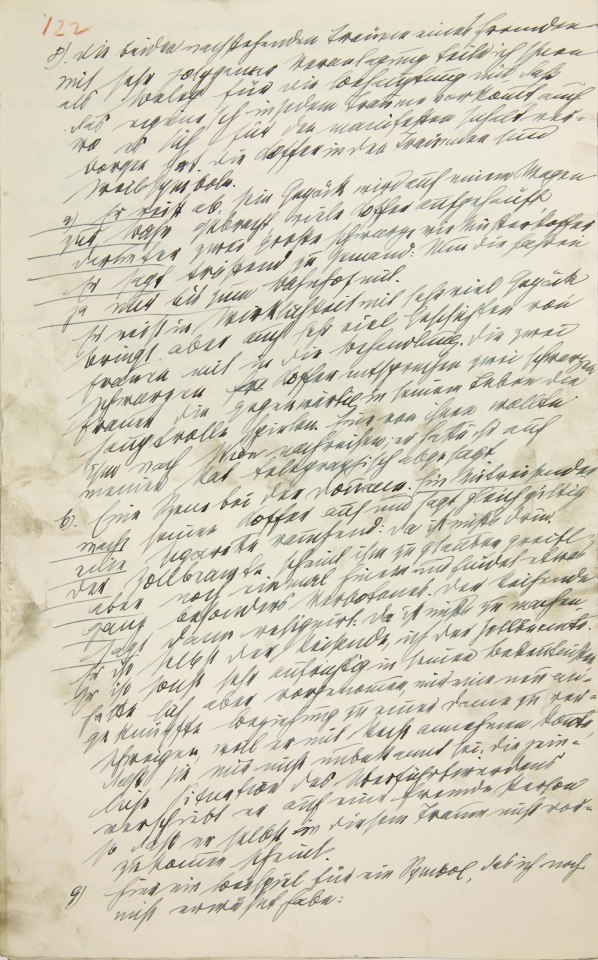 122
8). Die beiden nachstehenden Träume eines Fremden
mit sehr polygamer Veranlagung teile ich hier
als Beleg für die Behauptung mit, daß
das eigene Ich in jedem Traume vorkommt auch
wo es sich für den manifesten Inhalt ver-
borgen hat. Die Koffer in den Träumen sind
Weibsymbole.
a) Er reist ab, sein Gepäck wird auf einem Wagen
zur Bahn gebracht, viele Koffer aufgehäuft,
darunter zwei große schwarze wie Musterkoffer.
Er sagt tröstend zu jemand: Nun die fahren
ja nur bis zum Bahnhof mit.
Er reist in Wirklichkeit mit sehr viel Gepäck
bringt aber auch sehr viel Geschichten von
Frauen mit in die Behandlung. Die zwei
schwarzen Koffer entsprechen zwei schwarzen
Frauen die gegenwärtig in seinem Leben die
Hauptrolle spielen. Eine von ihnen wollte
ihm nach Wien nachreisen, er hatte ihr auf
meinen Rat telegraphisch abgesagt.
b). Eine Szene bei der Douane: Ein Mitreisender
macht seinen Koffer auf und sagt gleichgültig
eine Zigarette rauchend: Da ist nichts drin.
Der Zollbeamte scheint ihm zu glauben, greift
aber noch einmal hinein und findet etwas
ganz besonders Verbotenes. Der Reisende
sagt dann resigniert: Da ist nichts zu machen.
Er ist selbst der Reisende, ich der Zollbeamte.
Er ist sonst sehr aufrichtig in seinen Bekenntnissen,
hatte sich aber vorgenommen, mir eine neu an-
geknüpfte Beziehung zu einer Dame zu ver-
schweigen, weil er mit Recht annehmen konnte,
daß sie mir nicht unbekannt sei. Die pein-
liche Situation des Überführtwerdens
verschiebt er auf eine fremde Person
so daß er selbst in diesem Traum nicht vor-
zukommen scheint.
9) Hier ein Beispiel für ein Symbol, das ich noch
nicht erwähnt habe: